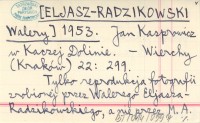 [ELJASZ-RADZIKOWSKI
Walery] 1953. Jan Kasprowicz
w Kaczej Dolinie. – Wierchy
(Kraków) 22: 299.
Tylko reprodukcja fotografii
zrobionej przez Walerego Eljasza-
Radzikowskiego, a nie przez M. A.